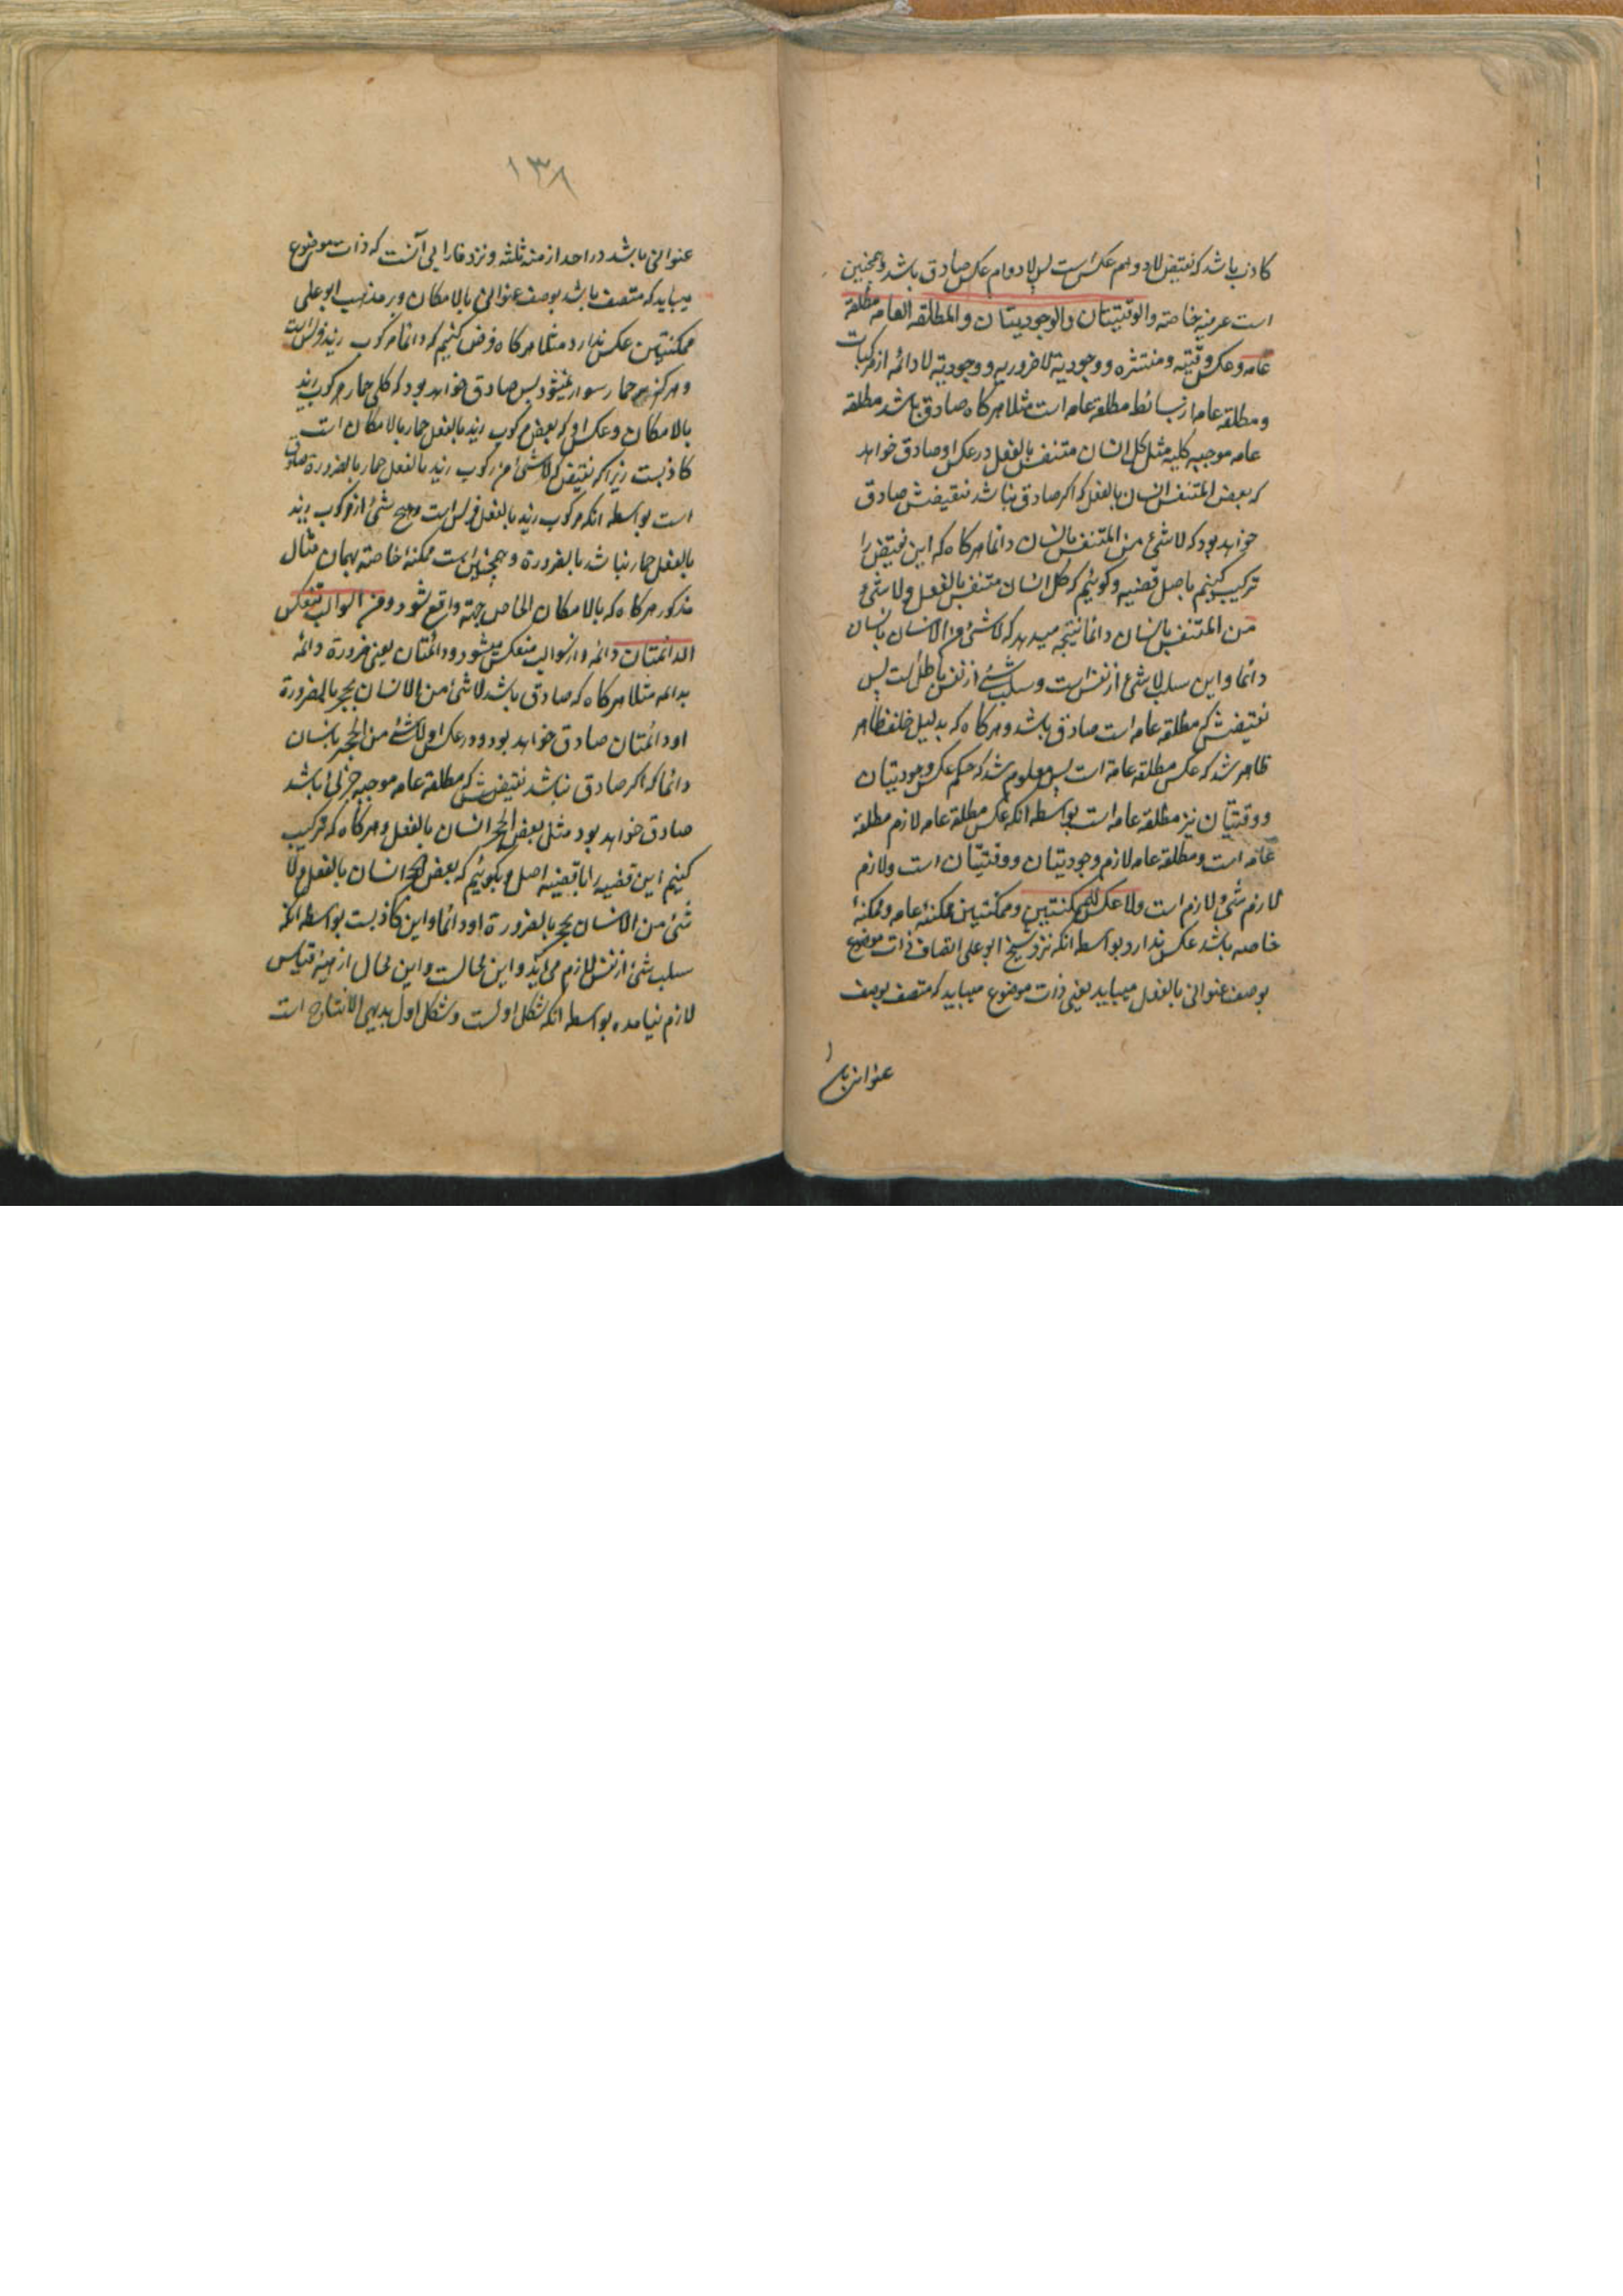 کاذب باشد که نقیض لادوام عکس است پس لادوام عکس صادق باشد و همچنین
است عرفیه خاصه والوقتیتان والوجودیتان والمطلقه العامه مطلقه
عامه و عکس وقتیه و منتشره و وجودیه لاضروریه و وجودیه لادائمه از مرکبات
و مطلقه عامه از بسائط مطلقه عامه است مثلا هرکاه صادق باشد مطلقه
عامه موجبه کلیه مثل کل انسان متنفس بالفعل در عکس او صادق خواهد
که بعض المتنفس انسان بالفعل که اکر صادق نباشد نقیضش صادق
خواهد بود که لاشئ من المتنفس بانسان دائما هرکاه که این نقیض را
ترکیب کنیم باصل قضیه و کوئیم که کل انسان متنفس بالفعل ولاشئ
من المتنفس بانسان دائما نتیجه میدهد که لاشئ من الانسان بانسان
دائما و این سلب شئ از نفس است و سلب شئ از نفس باطل است پس
نقیضش که مطلقه عامه است صادق باشد و هرکاه که بدلیل خلف ظاهر
ظاهر شد که عکس مطلقه عامه است پس معلوم شد که حکم عکس وجودیتان
و وقتیتان نیز مطلقه عامه است بواسطه انکه عکس مطلقه عامه لازم مطلقه
عامه است و مطلقه عامه لازم وجودیتان و وقتیتان است و لازم
لازم شئ لازم است ولا عکس للممکنتین و ممکنتین ممکنه عامه و ممکنه
خاصه باشد عکس ندارد بواسطه انکه نزد شیخ ابو علی اتصاف ذات موضوع
بوصف عنوانی بالفعل میباید یعنی ذات موضوع میباید که متصف بوصف
عنوانی با
۱۳۸
عنوانی باشد در احد ازمنه ثلثه و نزد فارابی آنست که ذات موضوع
میباید که متصف باشد بوصف عنوانی بالامکان و بر مذهب ابو علی
ممکنتین عکس ندارد مثلا هرکاه فرض کنیم که دائما مرکوب زید فرس است
و هرکز بر حمار سوار نمیشود پس صادق خواهد بود که کل حمار مرکوب زید
بالامکان و عکس او که بعض مرکوب زید بالفعل حمار بالامکان است
کاذبست زیرا که نقیض که لاشئ من مرکوب زید بالفعل حمار بالضرورة صادق
است بواسطه انکه مرکوب زید بالفعل فرس است و هیچ شئ از مرکوب زید
بالفعل حمار نباشد بالضرورة و همچنین است ممکنه خاصه بهمان مثال
مذکور هرکاه که بالامکان الخاص جهة واقع شود و من السوالب تنعکس
الدائمتان دائمه و از سوالب منعکس میشود دائمتان یعنی ضرورة دائمه
بدائمه مثلا هرکاه که صادق باشد لاشئ من الانسان بحجر بالضرورة
او دائمتان صادق خواهد بود در عکس او لاشئ من الحجر بانسان
دائما که اکر صادق نباشد نقیضش که مطلقه عامه موجبه جزئی باشد
صادق خواهد بود مثل بعض الحجر انسان بالفعل و هرکاه که ترکیب
کنیم این قضیه را باقضیه اصل و بکوئیم که بعض الحجر انسان بالفعل ولا
شئ من الانسان بحجر بالضرورة او دائما و این کاذبست بواسطه انکه
سلب شئ از نفس لازم می آید و این محالست و این محال از هیئه قیاس
لازم نیامده بواسطه انکه شکل اولست و شکل اول بدیهی الانتاج است